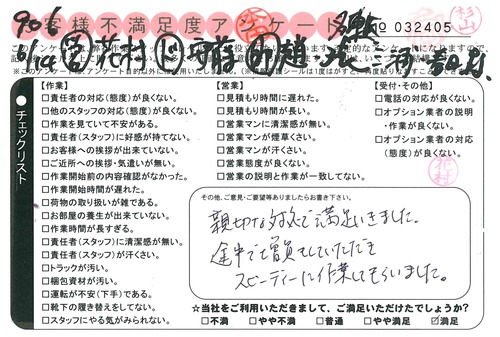 お客様不満足度アンケート
No 032405
906
6/14
チェックリスト
【作業】
□責任者の対応(態度)が良くない。
□他のスタッフの対応(態度)が良くない。
□作業を見ていて不安がある。
□責任者(スタッフ)に好感が持てない。
□お客様への挨拶が出来ていない。
□ご近所への挨拶・気遣いが無い。
□作業開始前の内容確認がなかった。
□作業開始時間が遅れた。
□荷物の取り扱いが雑である。
□お部屋の養生が出来ていない。
□作業時間が長すぎる。
□責任者(スタッフ)に清潔感が無い。
□責任者(スタッフ)が汗くさい。
□トラックが汚い。
□梱包資材が汚い。
□運転が不安(下手)である。
□靴下の履き替えをしてない。
□スタッフにやる気がみられない。
【営業】
□見積もり時間に遅れた。
□見積もり時間が長い。
□営業マンに清潔感が無い。
□営業マンが煙草くさい。
□営業マンが汗くさい。
□営業態度が良くない。
□営業の説明と作業が一致してない。
【受付・その他】
□電話の対応が良くない。
□オプション業者の説明
・作業が良くない。
□オプション業者の対応
(態度)が良くない。
その他、ご意見・ご要望等ありましたらお書き下さい。
親切な対応で満足いきました。
途中で増員をしていただき
スピーディーに作業してもらいました。
☆当社をご利用いただきまして、ご満足いただけたでしょうか?
□不満 □やや不満 □普通 □やや満足 ☑満足